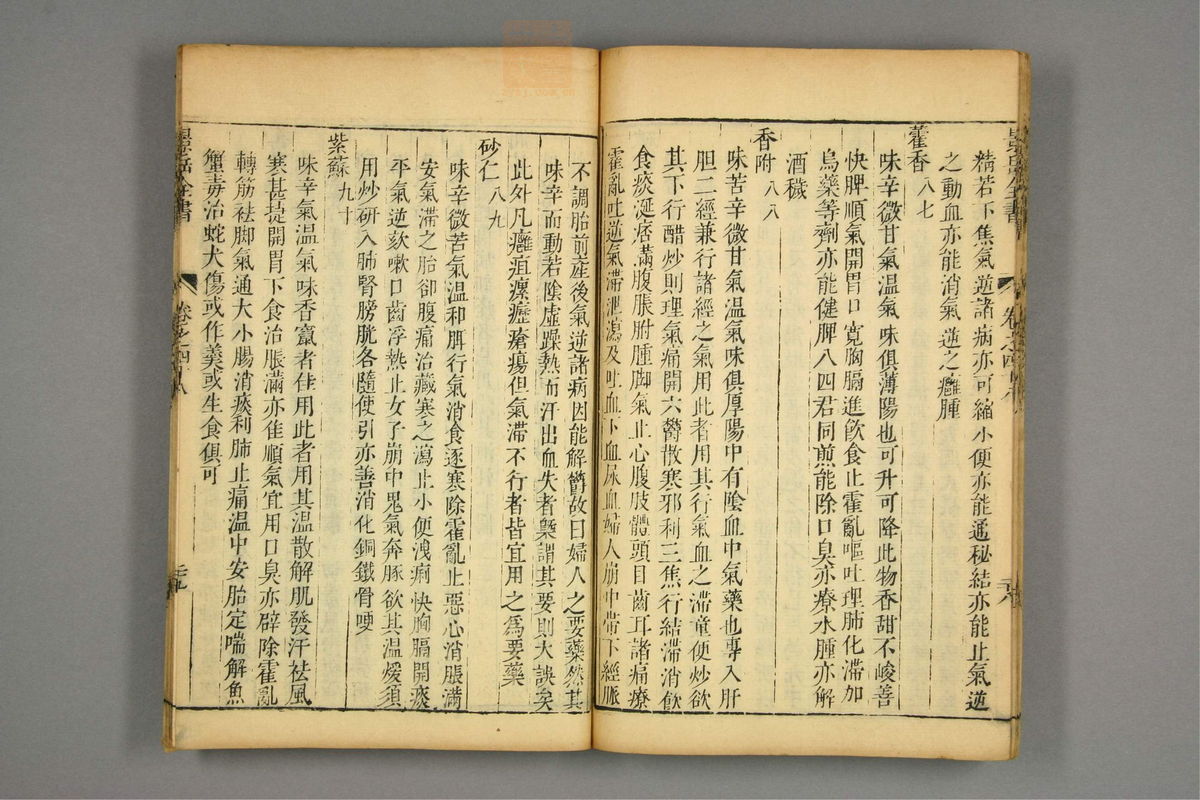 精若下焦氣逆諸病亦可縮小便亦能通秘結亦能止氣逆
之動血亦能消氣逆之癰腫
藿香八七
味辛微甘氣溫氣味俱薄陽也可升可降此物香甜不峻善
快脾順氣開胃口寬胸膈進飲食止霍亂嘔吐理肺化滯加
烏藥等劑亦能健脾入四君同煎能除口臭亦療水腫亦解
酒穢
香附八八
味苦辛微甘氣溫氣味俱厚陽中有陰血中氣藥也專入肝
胆二經兼行諸經之氣用此者用其行氣血之滯童便炒欲
其下行醋炒則理氣痛開六鬱散寒邪利三焦行結滯消飲
食痰涎痞滿腹脹胕腫脚氣止心腹肢體頭目齒耳諸痛療
霍亂吐逆氣滯泄瀉及吐血下血尿血婦人崩中帶下經脈
景岳全書
卷之四十八
不調胎前產後氣逆諸病因能解鬱故曰婦人之要藥然其
味辛而動若陰虛躁熱而汗出血失者槩謂其要則大誤矣
此外凡癰疽瘰癧瘡瘍但氣滯不行者皆宜用之爲要藥
砂仁八九
味辛微苦氣溫和脾行氣消食逐寒除霍亂止惡心消脹滿
安氣滯之胎卻腹痛治藏寒之瀉止小便洩痢快胸膈開痰
平氣逆欬嗽口齒浮熱止女子崩中鬼氣奔豚欲其溫煖須
用炒研入肺腎膀胱各隨使引亦善消化銅鐵骨哽
紫蘇九十
味辛氣溫氣味香竄者佳用此者用其溫散解肌發汗祛風
寒甚捷開胃下食治脹滿亦佳順氣宜用口臭亦辟除霍亂
轉筋祛脚氣通大小腸消痰利肺止痛溫中安胎定喘解魚
蟹毒治蛇犬傷或作羹或生食俱可
景岳全書
卷之四十八